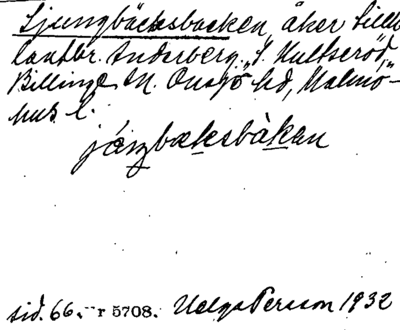 Ljungbäcksbacken, åker tillh.
lantbr. Anderberg, "S. Hultseröd,"
Billinge sn. Onsjö hd, Malmö-
hus l.
sid. 66. nr 5708. Helga Persson 1932